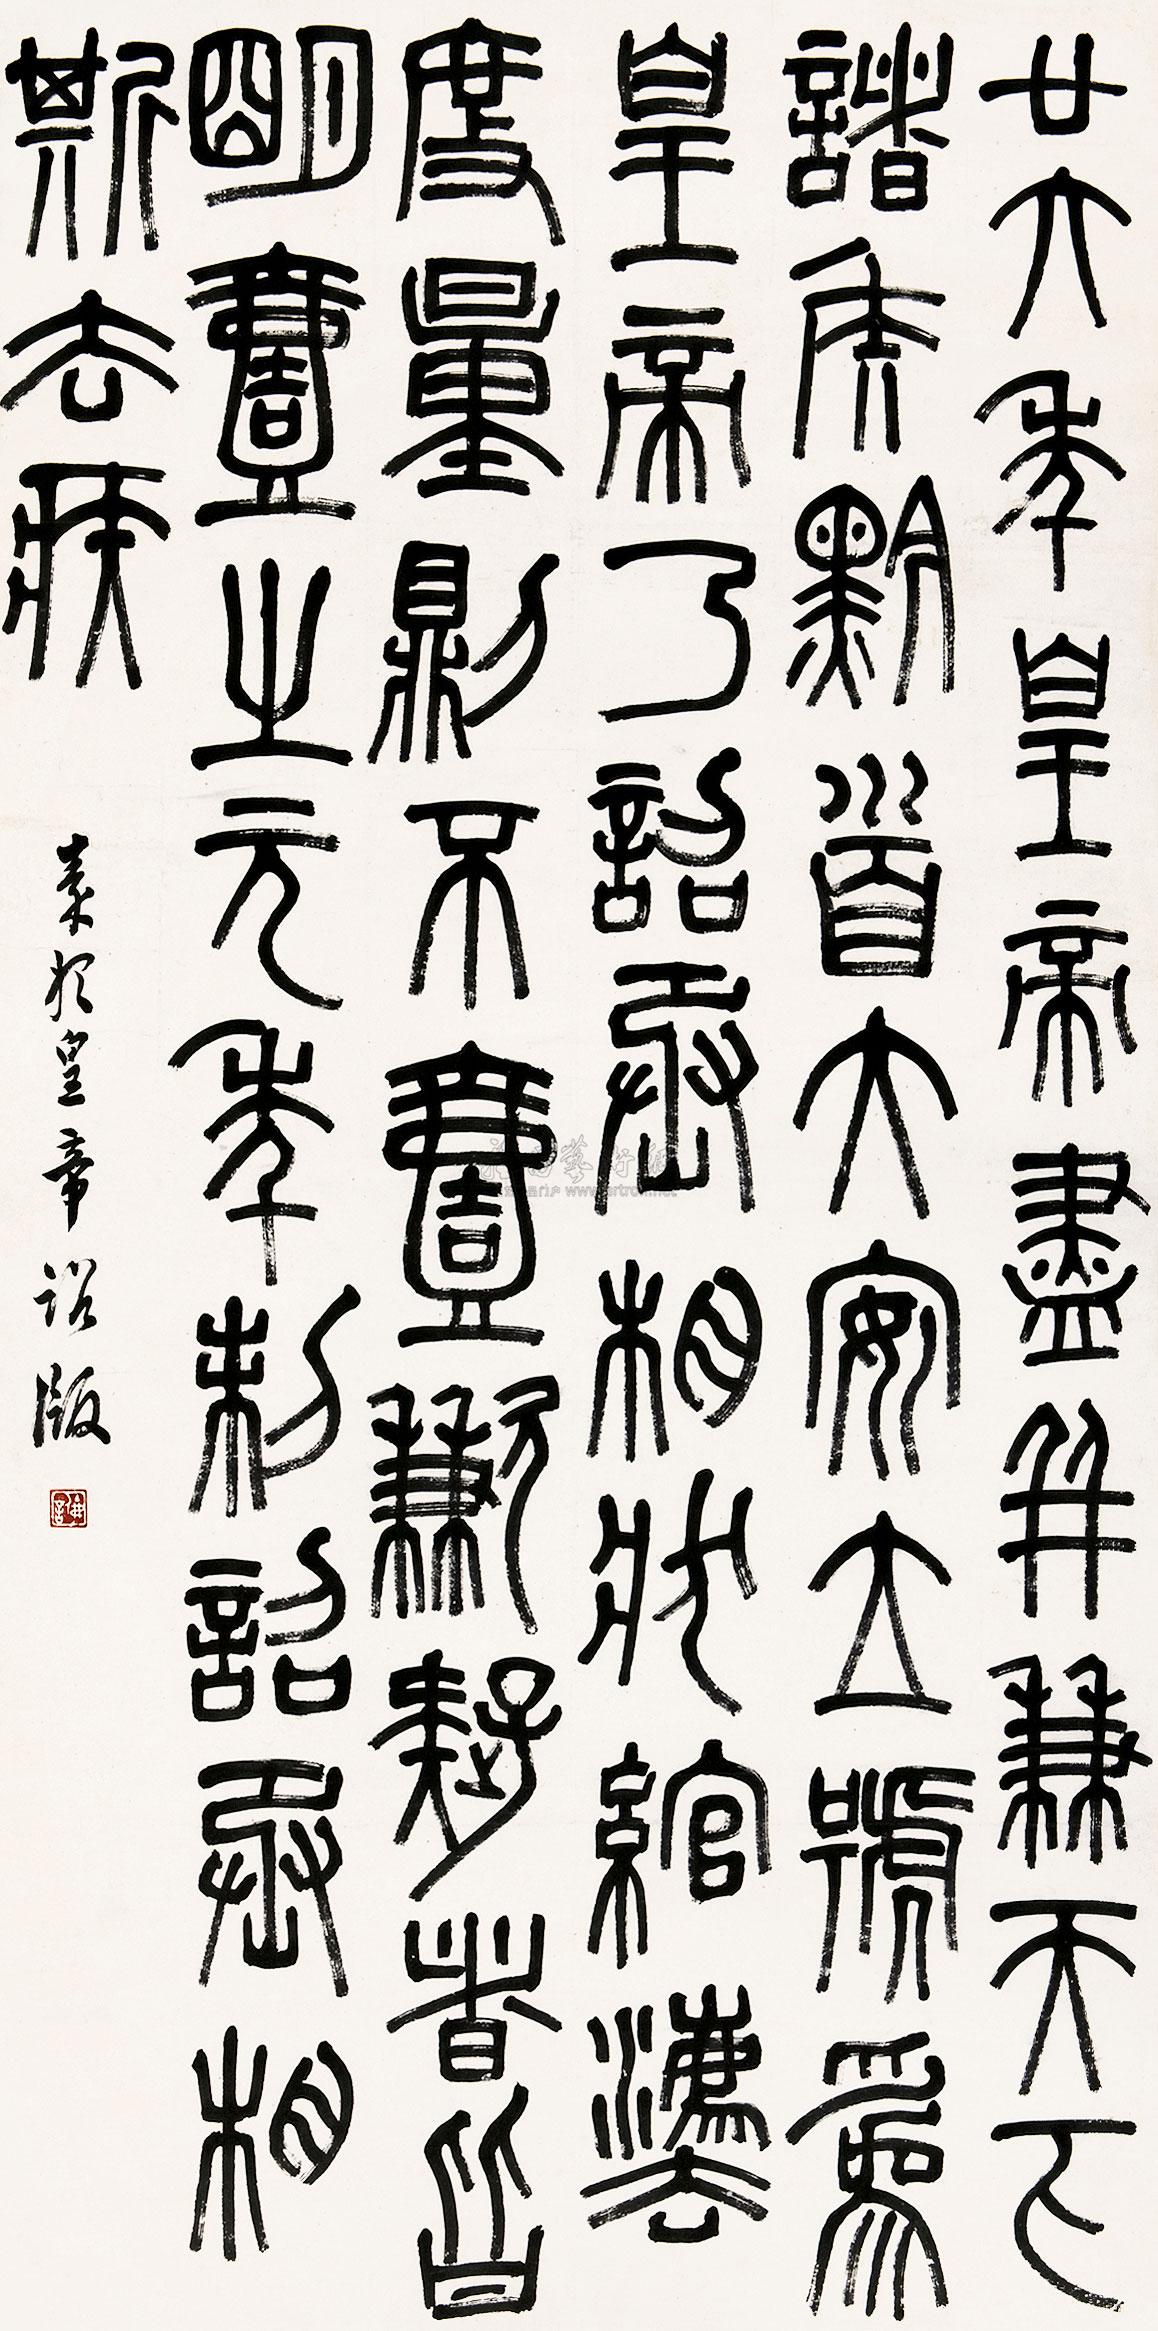 廿六年皇帝盡并兼天下
諸侯黔首大安立號爲
皇帝乃詔丞相狀綰灋
度量則不壹歉疑者皆
明壹之元年制詔丞相
斯去疾
秦始皇帝詔版